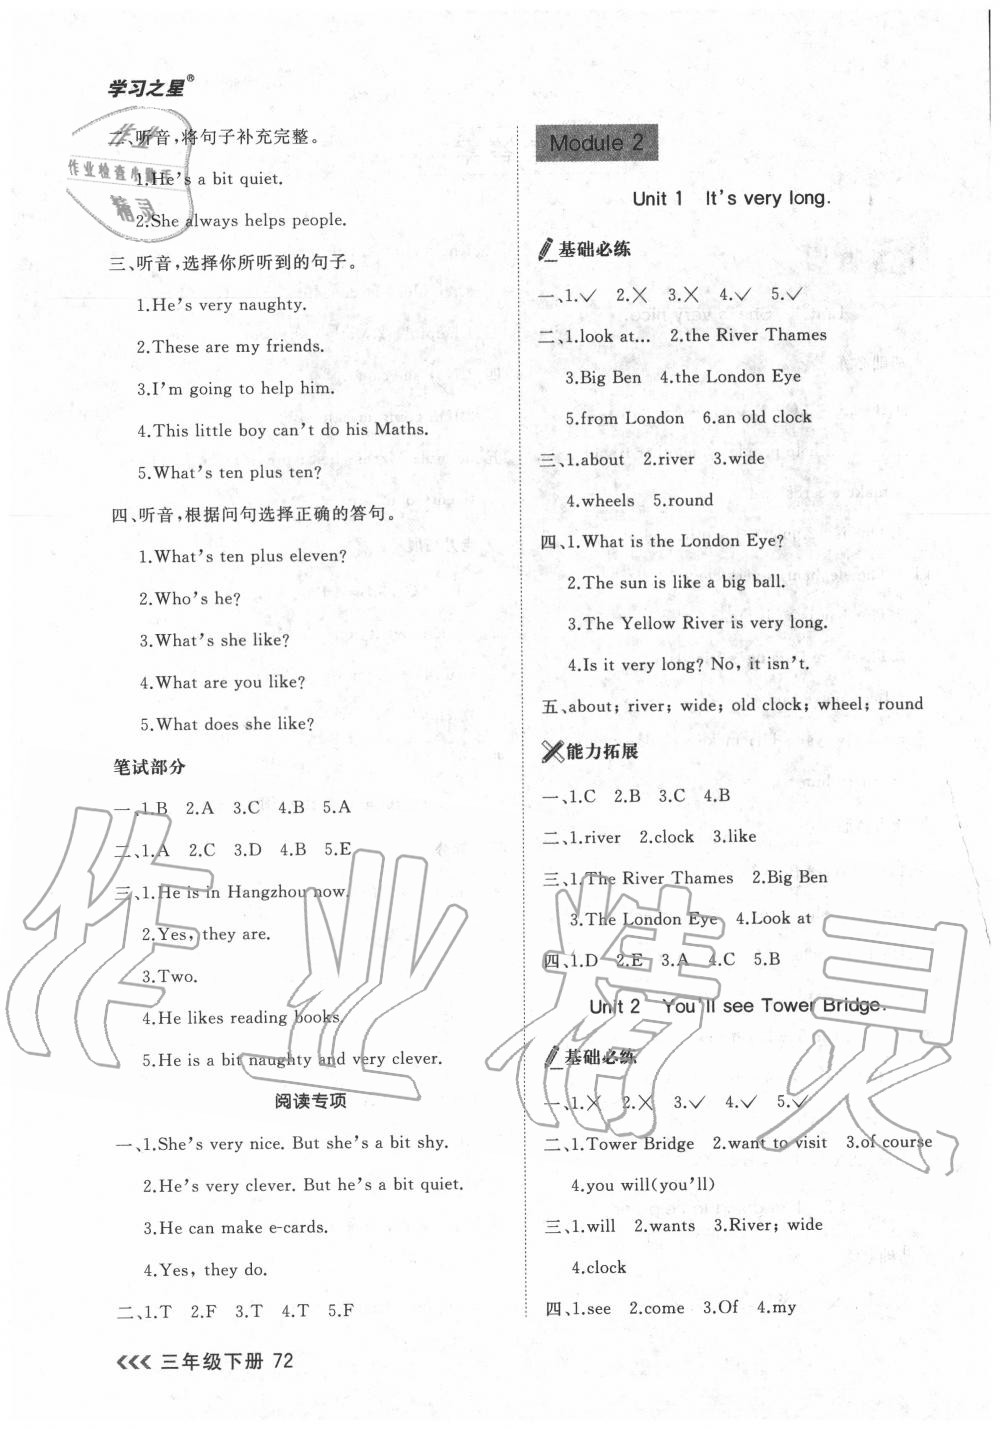 学习之星®
二、听音,将句子补充完整。
1.He's a bit quiet.
2.She always helps people.
三、听音,选择你所听到的句子。
1.He's very naughty.
2.These are my friends.
3.I'm going to help him.
4.This little boy can't do his Maths.
5.What's ten plus ten?
四、听音,根据问句选择正确的答句。
1.What's ten plus eleven?
2.Who's he?
3.What's she like?
4.What are you like?
5.What does she like?
笔试部分
一、1.B 2.A 3.C 4.B 5.A
二、1.A 2.C 3.D 4.B 5.E
三、1.He is in Hangzhou now.
2.Yes, they are.
3.Two.
4.He likes reading books.
5.He is a bit naughty and very clever.
阅读专项
一、1.She's very nice. But she's a bit shy.
2.He's very clever. But he's a bit quiet.
3.He can make e-cards.
4.Yes, they do.
二、1.T 2.F 3.T 4.T 5.F
三年级下册 72
Module 2
Unit 1 It's very long.
基础必练
一、1.✓ 2.✗ 3.✗ 4.✓ 5.✓
二、1.look at... 2.the River Thames
3.Big Ben 4.the London Eye
5.from London 6.an old clock
三、1.about 2.river 3.wide
4.wheels 5.round
四、1.What is the London Eye?
2.The sun is like a big ball.
3.The Yellow River is very long.
4.Is it very long? No, it isn't.
五、about; river; wide; old clock; wheel; round
能力拓展
一、1.C 2.B 3.C 4.B
二、1.river 2.clock 3.like
三、1.The River Thames 2.Big Ben
3.The London Eye 4.Look at
四、1.D 2.E 3.A 4.C 5.B
Unit 2 You'll see Tower Bridge.
基础必练
一、1.✗ 2.✗ 3.✓ 4.✓ 5.✓
二、1.Tower Bridge 2.want to visit 3.of course
4.you will(you'll)
三、1.will 2.wants 3.River; wide
4.clock
四、1.see 2.come 3.Of 4.my
作业
作业检查小助手
精灵
作业精灵